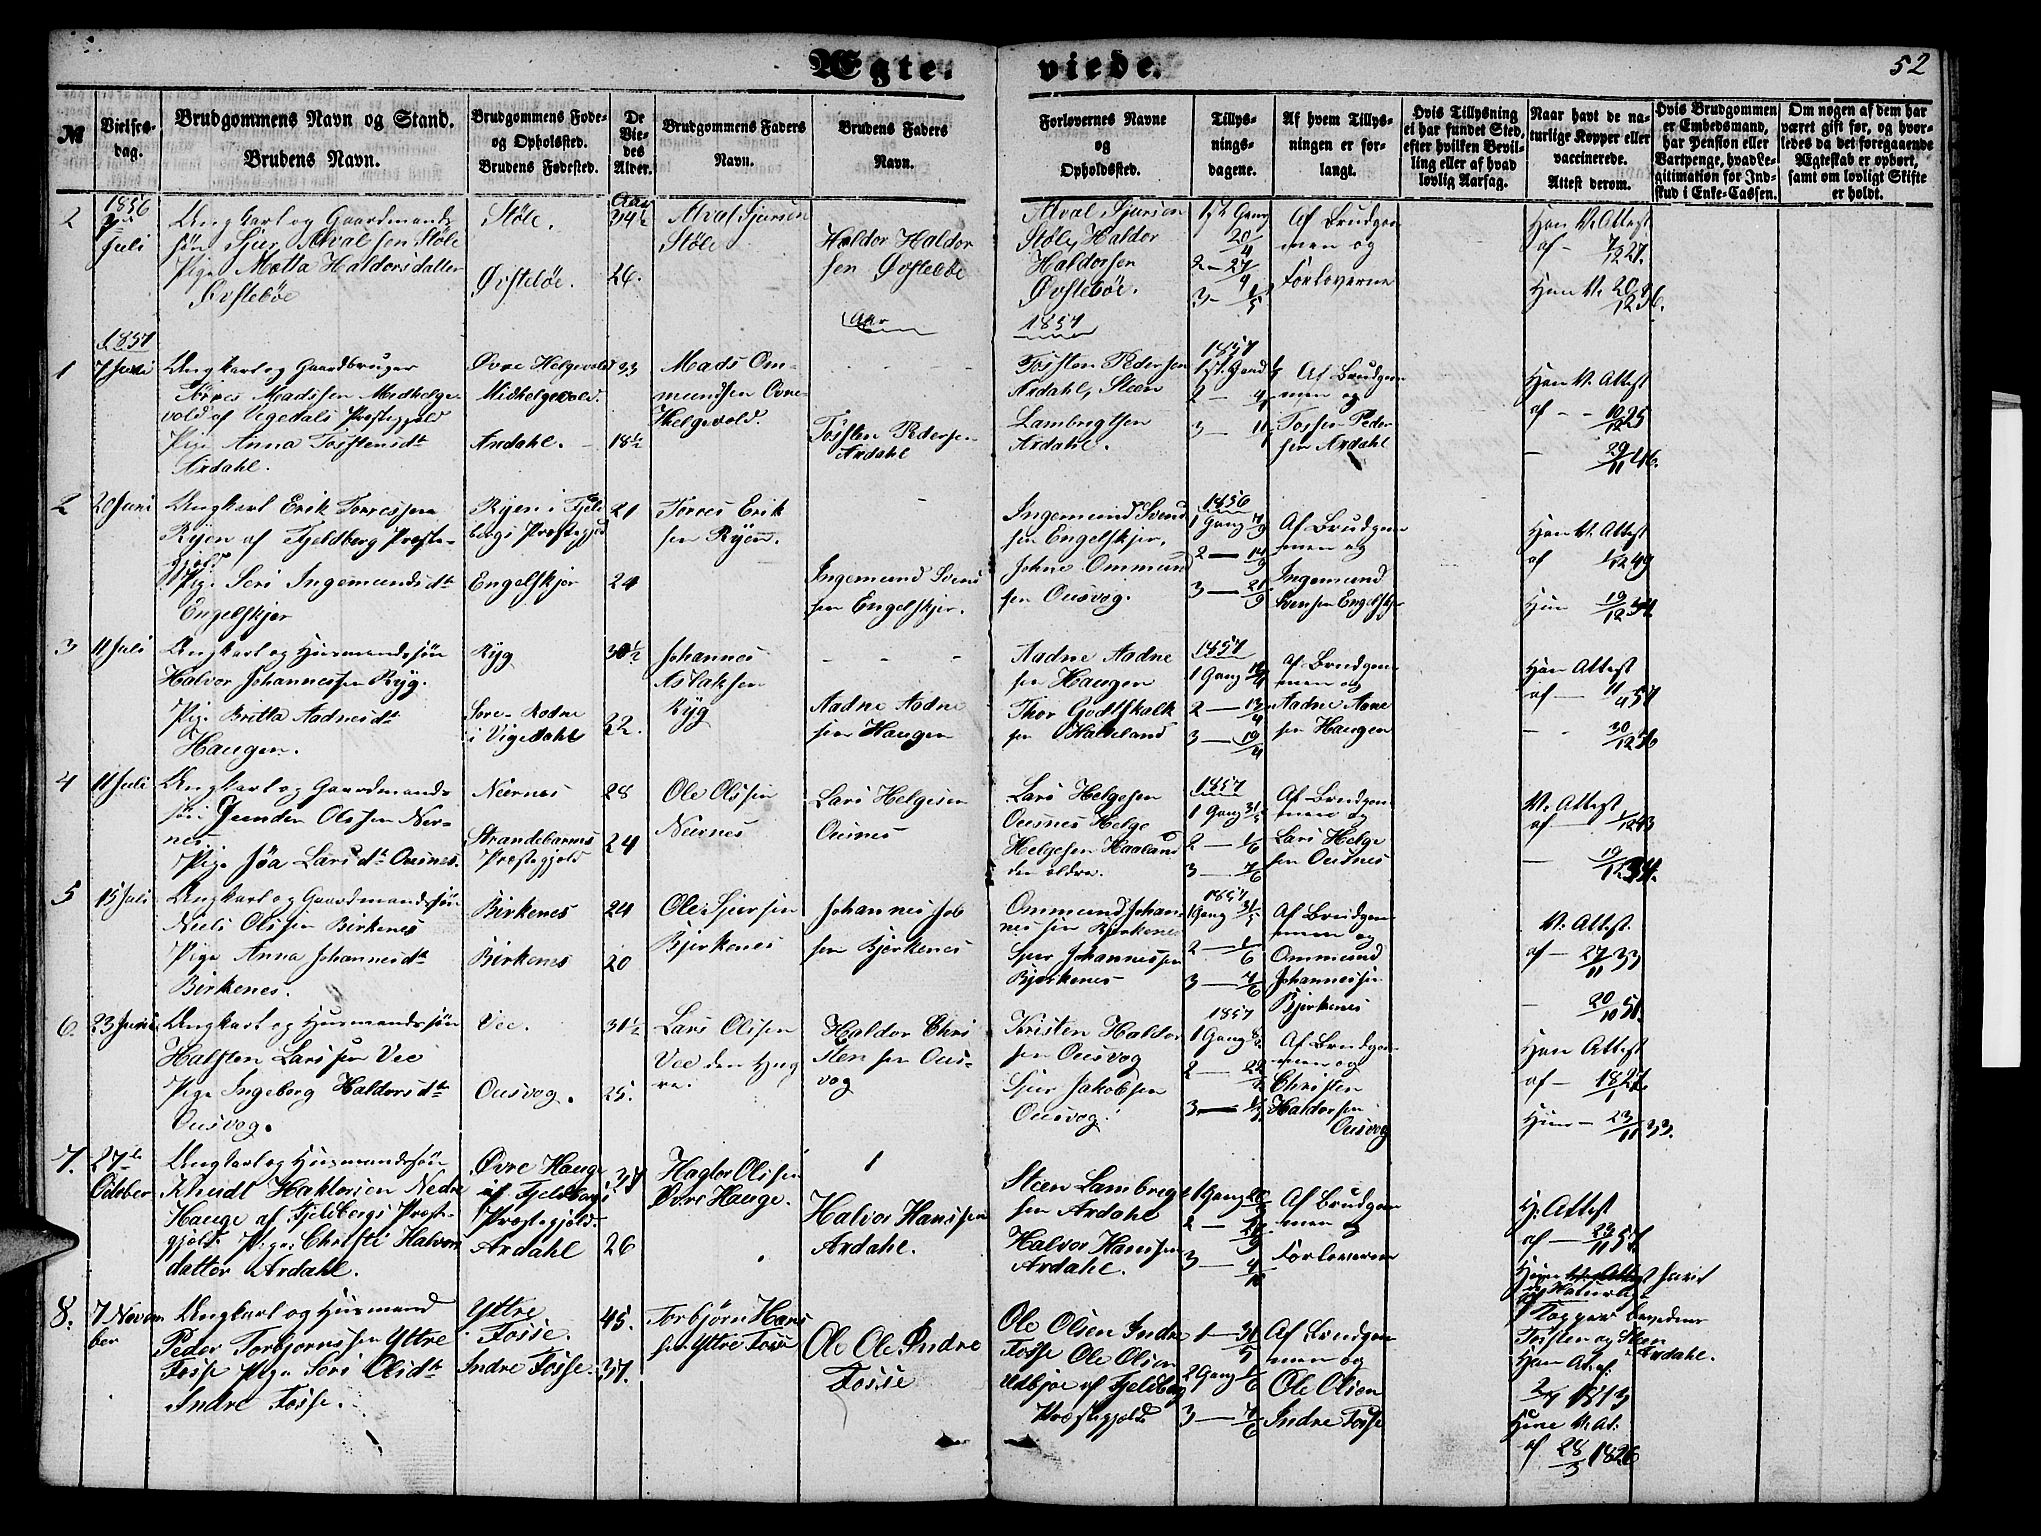 Ægte-
viede.
52
No
Vielses-
dag.
Brudgommens Navn og Stand.
Brudens Navn.
Brudgommens Føde-
og Opholdssted.
Brudens Fødested.
De
Vie-
des
Alder.
Brudgommens Faders
Navn.
Brudens Faders
Navn.
Forlovernes Navne
og
Opholdssted.
Tillys-
nings-
dagene.
Af hvem Tillys-
ningen er for-
langt.
Hvis Tillysning
ei har fundet Sted,
efter hvilken Bevil-
ling eller af hvad
lovlig Aarsag.
Naar havt de na-
turlige Kopper eller
vaccinerede.
Attest derom.
Hvis Brudgommen
er Embedsmand,
har Pension eller
Vartpenge, hvad Le-
gitimation for Ind-
skud i Enke-Cassen.
Om nogen af dem har
været gift før, og hvor-
ledes da det foregaaende
Ægteskab er ophørt,
samt om lovligt Skifte
er holdt.
1856
2
Juli
Ungkarl og Gaardmands
søn Sjur Atval sen Støle
Pige Metta Haldorsdatter
Øvstebøe
Støle.
Øvstebøe.
Aar
34½
26.
Atval Sjursen
Støle
Haldor Haldor
sen Øvstebøe
Atval Sjursen
Støle, Haldor
Haldorsen
Øvstebøe.
1st Gang
20/4
2 - 27/4
3 -
Af Brudgom
men og
Forloverne
Han V. Attest
af - 7/12 27.
Hun V. 20/12 36.
Aar
1857
1857
1
7 Juni
Ungkarl og Gaardbruger
Tørres Madssen Medhelge
vold af Vigedals Præstegjæld
Pige Anna Tostensdt
Ardahl.
Øvre Helgevold
Midhelgevold.
Ardahl.
33
18½
Mads Om-
mundsen Øvre
Helgevold.
Tosten Pedersen
Ardahl
Tosten Pedersen
Ardahl, Steen
Lambregtsen
Ardahl.
1857
1st. Gang
2 -
3 - 11
Af Brudgom
men og
Tosten Peder
sen Ardahl
Han V. Attest
af - - 10/12 25
- 29/11 46.
2
20 Juni
Ungkarl Erik Torressen
Ryen af Fjeldberg Præste-
gjeld
Pige Seri Ingemundsdt
Engelskjer
Ryen i Fjeld
bergs Præstegjeld
Engelskjer
21
24
Torres Erik
sen Ryen.
Ingemund Svend
sen Engelskjer.
Ingemund Svend
sen Engelskjer,
Johne Ommund
sen Ousvog.
1856
1 Gang 7/9
2 - 14/9
3 - 21/9
Af Brudgom
men og
Ingemund
Svensen Engelskjer
Han V. Attest
af 1/12 49
Hun 19/12 34
3
11 Juli
Ungkarl og Husmandssøn
Halvor Johannessen Ryg.
Pige Britta Aadnesdt
Haugen.
Ryg
Søre-Rodne
i Vigedahl
30½
22.
Johannes
Aslaksen
Ryg
Aadne Aadne
sen Haugen
Aadne Aadne
sen Haugen
Thor Godtskalk
sen Halleland
1857
1 Gang
2 - 13/4
3 - 19/4
Af Brudgom
men og
Aadne Aadne
sen Haugen
Han Attest
af - 11/4 57
- - 30/12 56
4
11 Juli
Ungkarl og Gaardmands
søn Olssen Nær-
nes
Pige Jøa Larsdt Ousnes.
Nærnes
Strandebarms
Præstegjeld
28
24
Ole Olssen
Nærnes
Lars Helgesen
Ousnes
Lars Helgesen
Ousnes Helge
Helgesen Haaland
den eldre.
1857
1 Gang 31/5
2 - 1/6
3 - 7/6
Af Brudgom
men og
Lars Helge
sen Ousnes
V. Attest
af - 1/12 43
- 19/12 34.
5
15 Juli
Ungkarl og Gaardmandssøn
Niels Olssen Birkenes
Pige Anna Johannesdt
Birkenes.
Birkenes
Birkenes
24
20
Ole Sjursen
Bjerkenes
Johannes Job
sen Bjerkenes
Ommund Johan-
nessen Bjerkenes
Sjur Johannessen
Bjerkenes
1857
1 Gang 31/5
2 - 1/6
3 - 7/6
Af Brudgom
men og
Ommund
Johannessen
Bjerkenes
V. Attest.
af - 27/11 33
- 20/10 51.
6.
23 Juni
Ungkarl og Husmandssøn
Halsten Larssen Vee
Pige Ingeborg Haldorsdt
Ousvog.
Vee.
Ousvog.
31½
25.
Lars Olssen
Vee den Yng
re.
Haldor Chri
sten sen Ous-
vog
Kristen Haldor
sen Ousvog
Sjur Jakobsen
Ousvog.
1857
1 Gang
2 - 22
3 -
Af Brudgom
men og
Christen
Haldorsen
Ousvog
Han Attest
af - 18/1 27.
Hun - 23/11 33.
7.
27de
October
Ungkarl og Husmandssøn
Knudt Haktorsen Nedre
Hauge af Fjeldbergs Præste-
gjeld. Pige Christi Halvors
datter Ardahl.
Øvre Hauge
af Fjeldbergs
Præstegjeld.
Ardahl
26
Hagtor Olssen
Øvre Hauge.
Halvor Hanssen
Ardahl.
Steen Lambregt
sen Ardahl
Halvor Hanssen
Ardahl.
1 Gang 20/9
2 -
3 - 4/10
Af Brudgom
men og
Forloverne
H. Attest
af - 23/11 57.
Hun havt
Naturlige
Kopper bevidner
Tosten og Sten
Ardahl.
8.
7 Novem
ber
Ungkarl og Husmand
Peder Torbjørnssen Yttre
Fosse Pige Seri Olsdt
Indre Fosse.
Yttre
Fosse.
Indre Fosse.
45.
37.
Torbjørn Hans
sen Yttre Fosse
Ole Ole Indre
Fosse
Ole Olsen Indre
Fosse Ole Olsen
Utbjoe af Fjeldberg
Præstegjeld
1 - 31/5
2 Gang 1/6
3 - 7/6
Af Brudgom
men og
Ole Olsen
Indre Fosse
Han At. af
1813
Hun V. At.
af 28/3 1826